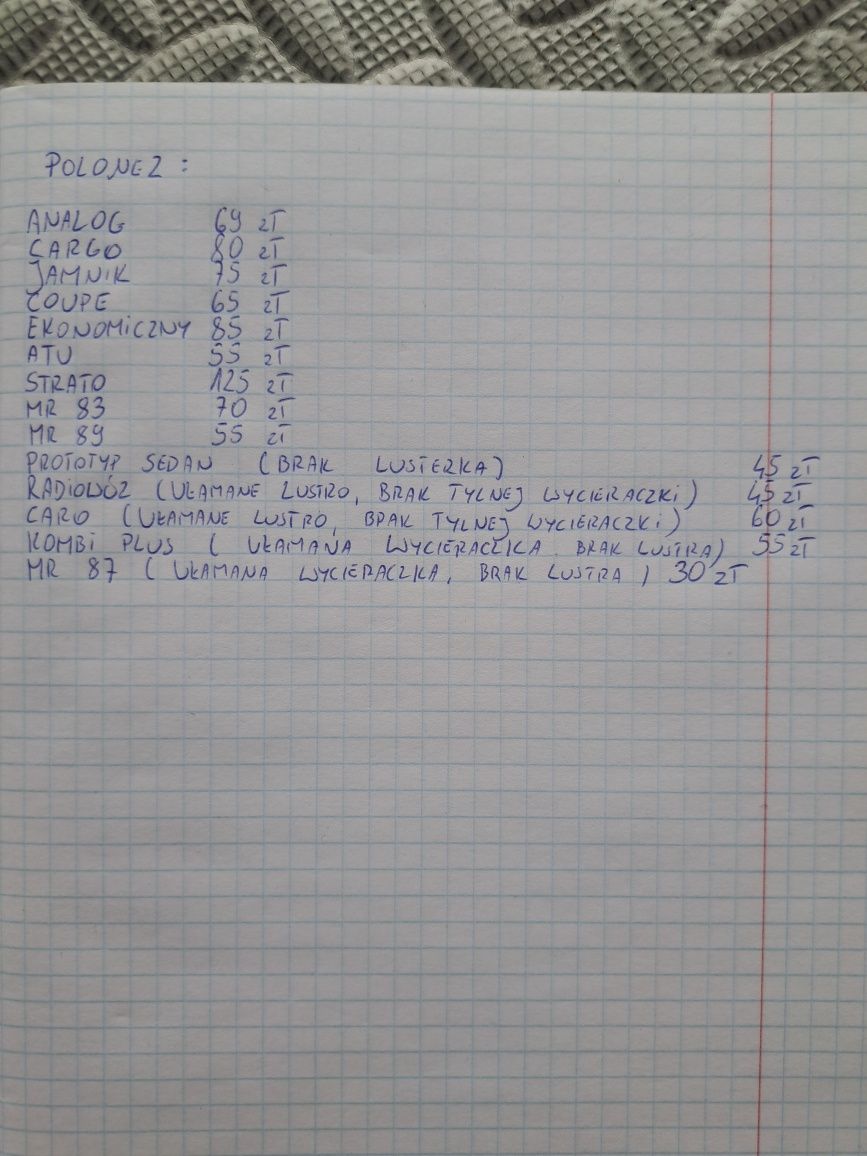 POLONEZ :
ANALOG 69 zł
CARGO 80 zł
JAMNIK 75 zł
COUPE 65 zł
EKONOMiCZNY 85 zł
ATU 55 zł
STRATO 125 zł
MR 83 70 zł
MR 89 55 zł
PROTOTYP SEDAN (BRAK LUSTERKA) 45 zł
RADIOWÓZ (UŁAMANE LUSTRO, BRAK TYLNEJ WYCIERACZKi) 45 zł
CARO (UŁAMANE LUSTRO, BRAK TYLNEJ WYCIERACZKi) 60 zł
KOMBi PLUS ( UŁAMANA WYCIERACZKA, BRAK LUSTRA) 55 zł
MR 87 ( UŁAMANA WYCIERACZKA, BRAK LUSTRA ) 30 zł